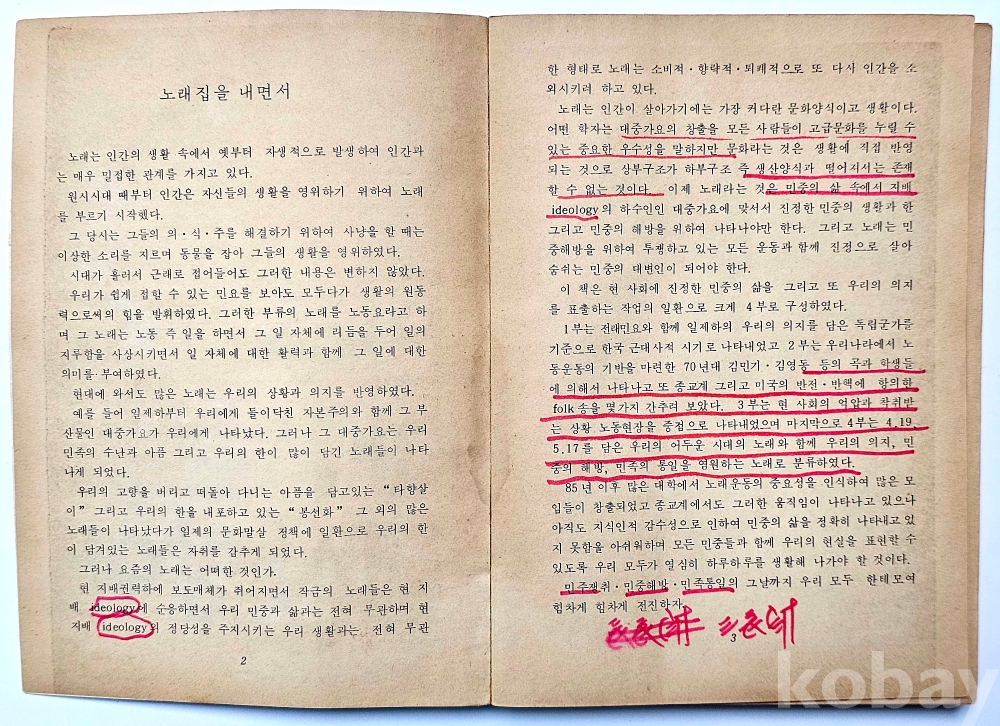 노래집을 내면서
노래는 인간의 생활 속에서 옛부터 자생적으로 발생하여 인간과
는 매우 밀접한 관계를 가지고 있다.
원시시대 때부터 인간은 자신들의 생활을 영위하기 위하여 노래
를 부르기 시작했다.
그 당시는 그들의 의·식·주를 해결하기 위하여 사냥을 할 때는
이상한 소리를 지르며 동물을 잡아 그들의 생활을 영위하였다.
시대가 흘러서 근래로 접어들어도 그러한 내용은 변하지 않았다.
우리가 쉽게 접할 수 있는 민요를 보아도 모두다가 생활의 원동
력으로써의 힘을 발휘하였다. 그러한 부류의 노래를 노동요라고 하
며 그 노래는 노동 즉 일을 하면서 그 일 자체에 리듬을 두어 일의
지루함을 사상시키면서 일 자체에 대한 활력과 함께 그 일에 대한
의미를 부여하였다.
현대에 와서도 많은 노래는 우리의 상황과 의지를 반영하였다.
예를 들어 일제하부터 우리에게 들이닥친 자본주의와 함께 그 부
산물인 대중가요가 우리에게 나타났다. 그러나 그 대중가요는 우리
민족의 수난과 아픔 그리고 우리의 한이 많이 담긴 노래들이 나타
나게 되었다.
우리의 고향을 버리고 떠돌아 다니는 아픔을 담고있는 “타향살
이” 그리고 우리의 한을 내포하고 있는 “봉선화” 그 외의 많은
노래들이 나타났다가 일제의 문화말살 정책에 일환으로 우리의 한
이 담겨있는 노래들은 자취를 감추게 되었다.
그러나 요즘의 노래는 어떠한 것인가.
현 지배권력하에 보도매체가 쥐어지면서 작금의 노래들은 현 지
배 ideology에 순응하면서 우리 민중과 삶과는 전혀 무관하며 현
지배 ideology의 정당성을 주지시키는 우리 생활과는 전혀 무관
2
한 형태로 노래는 소비적·향락적·퇴폐적으로 또 다시 인간을 소
외시키려 하고 있다.
노래는 인간이 살아가기에는 가장 커다란 문화양식이고 생활이다.
어떤 학자는 대중가요의 창출을 모든 사람들이 고급문화를 누릴 수
있는 중요한 우수성을 말하지만 문화라는 것은 생활에 직접 반영
되는 것으로 상부구조가 하부구조 즉 생산양식과 떨어져서는 존재
할 수 없는 것이다. 이제 노래라는 것은 민중의 삶 속에서 지배
ideology의 하수인인 대중가요에 맞서서 진정한 민중의 생활과 한
그리고 민중의 해방을 위하여 나타나야만 한다. 그리고 노래는 민
중해방을 위하여 투쟁하고 있는 모든 운동과 함께 진정으로 살아
숨쉬는 민중의 대변인이 되어야 한다.
이 책은 현 사회에 진정한 민중의 삶을 그리고 또 우리의 의지
를 표출하는 작업의 일환으로 크게 4부로 구성하였다.
1부는 전래민요와 함께 일제하의 우리의 의지를 담은 독립군가를
기준으로 한국 근대사적 시기로 나타내었고 2부는 우리나라에서 노
동운동의 기반을 마련한 70년대 김민기·김영동 등의 곡과 학생들
에 의해서 나타나고 또 종교계 그리고 미국의 반전·반핵에 항의한
folk송을 몇가지 간추려 보았다. 3부는 현 사회의 억압과 착취받
는 상황 노동현장을 중점으로 나타내었으며 마지막으로 4부는 4.19
5.17를 담은 우리의 어두운 시대의 노래와 함께 우리의 의지, 민
중의 해방, 민족의 통일을 염원하는 노래로 분류하였다.
85년 이후 많은 대학에서 노래운동의 중요성을 인식하여 많은 모
임들이 창출되었고 종교계에서도 그러한 움직임이 나타나고 있으나
아직도 지식인적 감수성으로 인하여 민중의 삶을 정확히 나타내고있
지 못함을 아쉬워하며 모든 민중들과 함께 우리의 현실을 표현할 수
있도록 우리 모두가 열심히 하루하루를 생활해 나가야 할 것이다.
민주쟁취·민중해방·민족통일의 그날까지 우리 모두 한테모여
힘차게 힘차게 전진하자
3
kobay